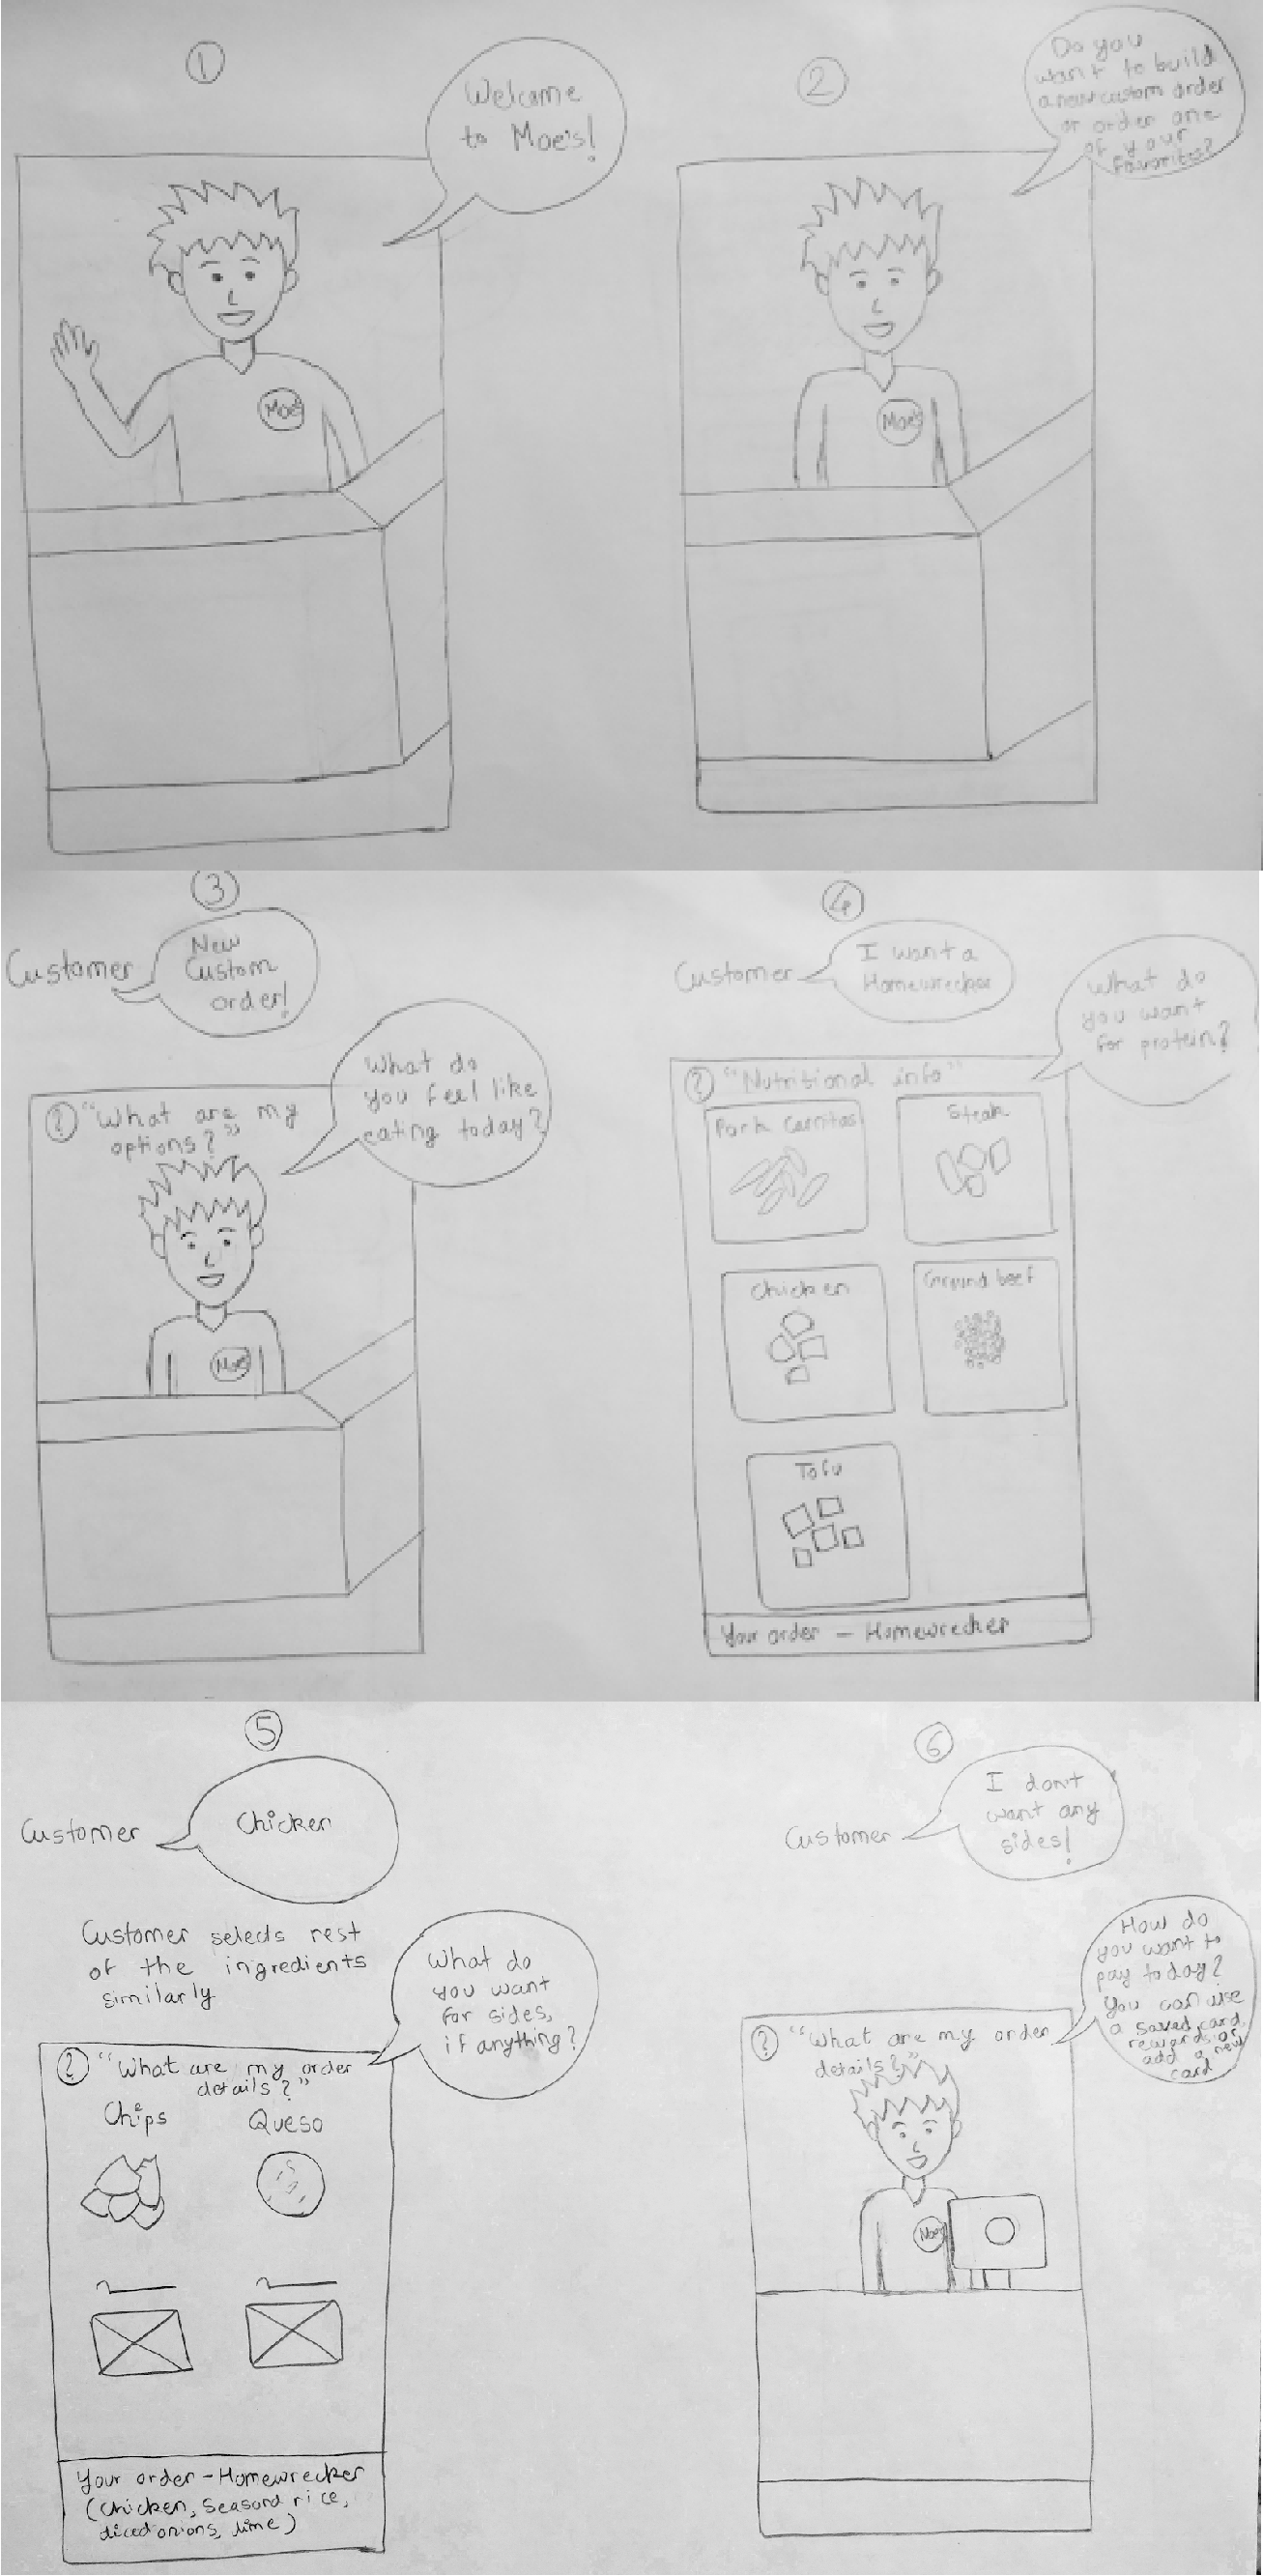 1
Welcome
to Moe's!
Moe's
2
Do you
want to build
a new custom order
or order one
of your
favorites?
Moe's
3
Customer
New
Custom
order!
What do
you feel like
eating today?
? "What are my
options?"
Moe's
4
Customer
I want a
Homewrecker
What do
you want
for protein?
? "Nutritional info"
Pork Carnitas
Steak
Chicken
Ground beef
Tofu
Your order - Homewrecker
5
Customer
Chicken
Customer selects rest
of the ingredients
similarly
What do
you want
for sides,
if anything?
? "What are my order
details?"
Chips
Queso
Your order - Homewrecker
(Chicken, Seasond rice,
diced onions, lime)
6
Customer
I don't
want any
sides!
How do
you want to
pay today?
You can use
a saved card,
rewards, or
add a new
card
? "What are my order
details?"
Moe's